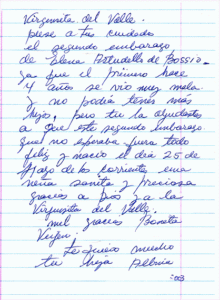 Virgencita del Valle.
pese a tus cuidado
el segundo embarazo
de Elena Astudillo de BOSSIO.
ya que el primero hace
4 años se vio muy mala.
y no podia tener más
hijo, pero tu la ayudastes
a que este segundo embarazo
quel no esperaba fuera todo
feliz y nacio el dia 25 de
Mayo de los corriente una
nena sanita y preciosa
gracias a Dios y a la
Virgencita del Valle.
mil gracias Bonita
Virgen.
te quiero mucho
tu hija Albina